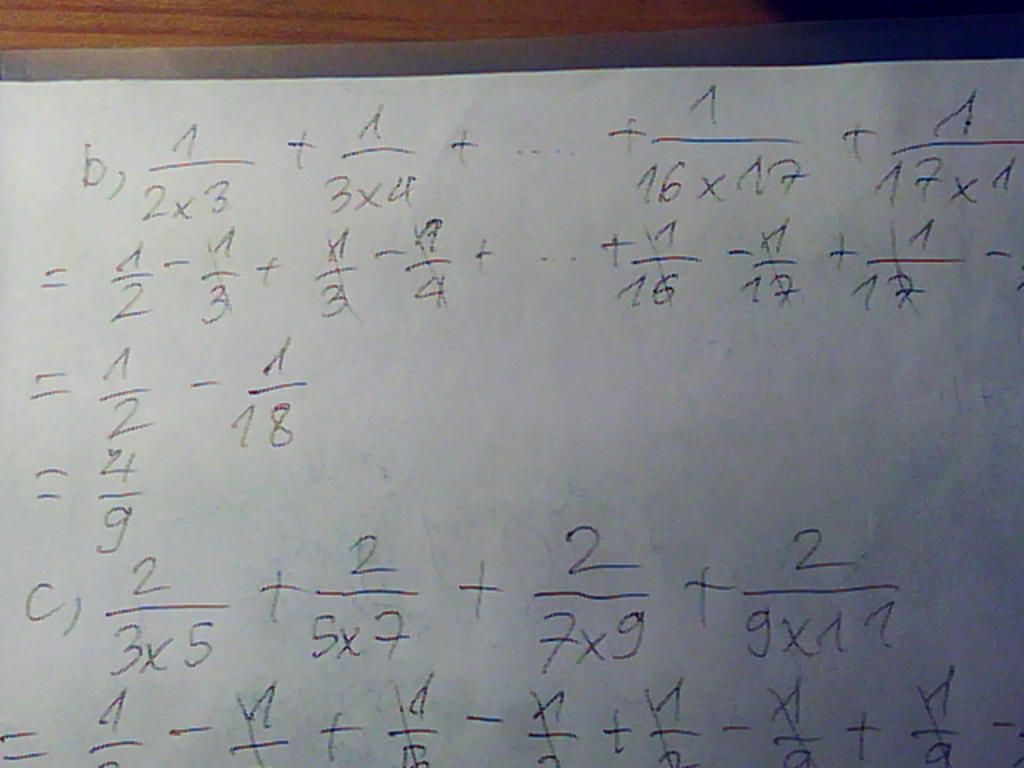 b, 1/2x3 + 1/3x4 + ..... + 1/16x17 + 1/17x1
= 1/2 - 1/3 + 1/3 - 1/4 + .... + 1/16 - 1/17 + 1/17 -
= 1/2 - 1/18
= 4/9
c, 2/3x5 + 2/5x7 + 2/7x9 + 2/9x11
= 1/3 - 1/ + 1/5 - 1/7 + 1/7 - 1/9 + 1/9 -